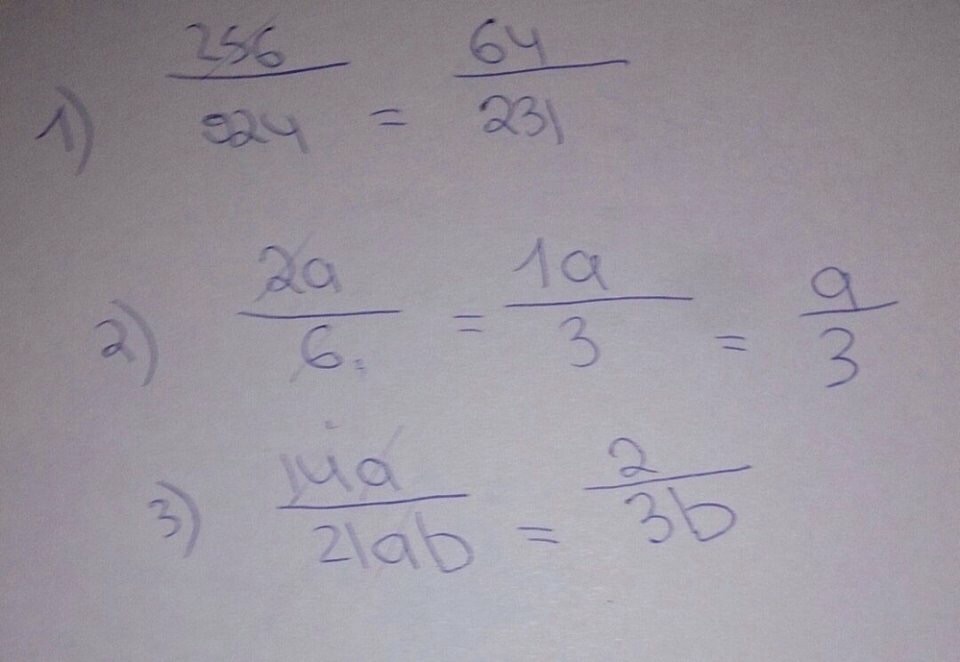 1) 256/924 = 64/231
2) 2a/6 = 1a/3 = a/3
3) 14a/21ab = 2/3b